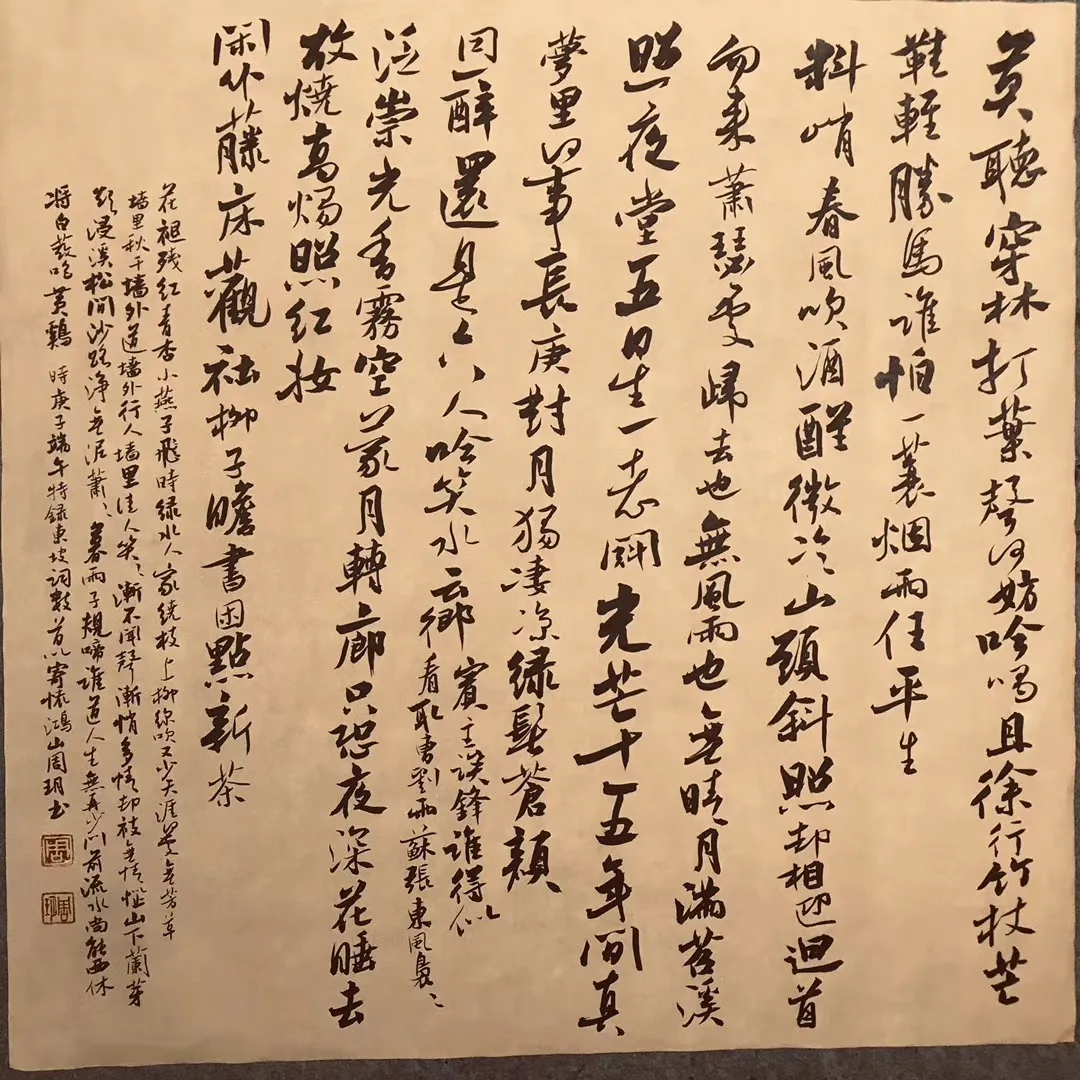 莫聽穿林打葉聲何妨吟嘯且徐行竹杖芒
鞋輕勝馬誰怕一蓑烟雨任平生
料峭春風吹酒醒微冷山頭斜照却相迎迴首
向来蕭瑟處歸去也無風雨也無晴月滿苕溪
照夜堂五星一老鬭光芒十五年間真
夢里何事長庚對月獨凄凉绿髩蒼顔
同一醉還是六人吟笑水雲鄉賓主談鋒誰得似
看取曹劉兩蘇張東風裊〻
泛崇光香霧空蒙月轉廊只恐夜深花睡去
故燒高燭照红妆
閑卜藤床觀社柳子瞻書困點新茶
花褪残红青杏小燕子飛時绿水人家绕枝上柳绵吹又少天涯何處無芳草
墙里秋千墙外道墙外行人墙里佳人笑〻漸不闻聲漸悄多情却被無情惱山下蘭芽
短浸溪松間沙路净無泥蕭〻暮雨子規啼誰道人生無再少门前流水尚能西休
将白髮唱黄鷄 時庚子端午特録東坡詞數首以寄懷鴻山周玥书
周
周玥